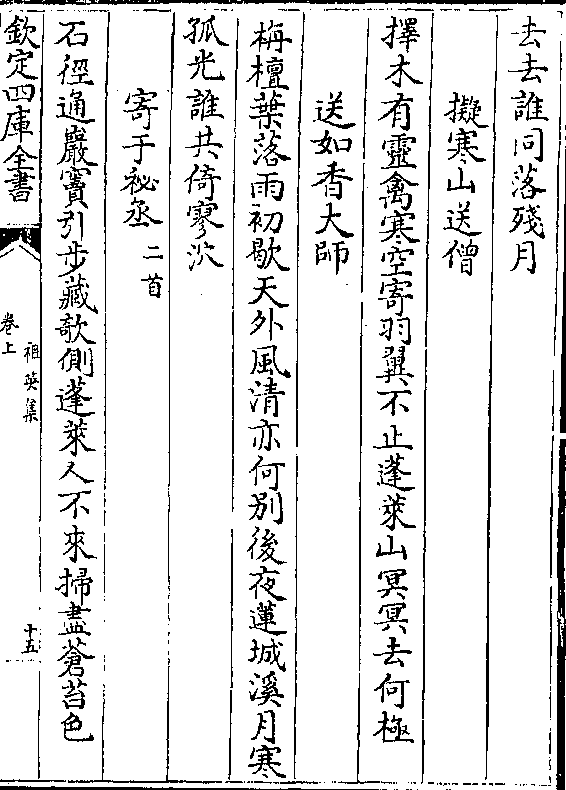 去去誰同落殘月
擬寒山送僧
擇木有靈禽寒空寄羽翼不止蓬萊山冥冥去何極
送如香大師
栴檀葉落雨初歇天外風清亦何別後夜蓮城溪月寒
孤光誰共倚寥泬
寄于秘丞二首
石徑通巖竇引步藏欹側蓬萊人不來掃盡蒼苔色
欽定四庫全書
祖英集
卷上
十五